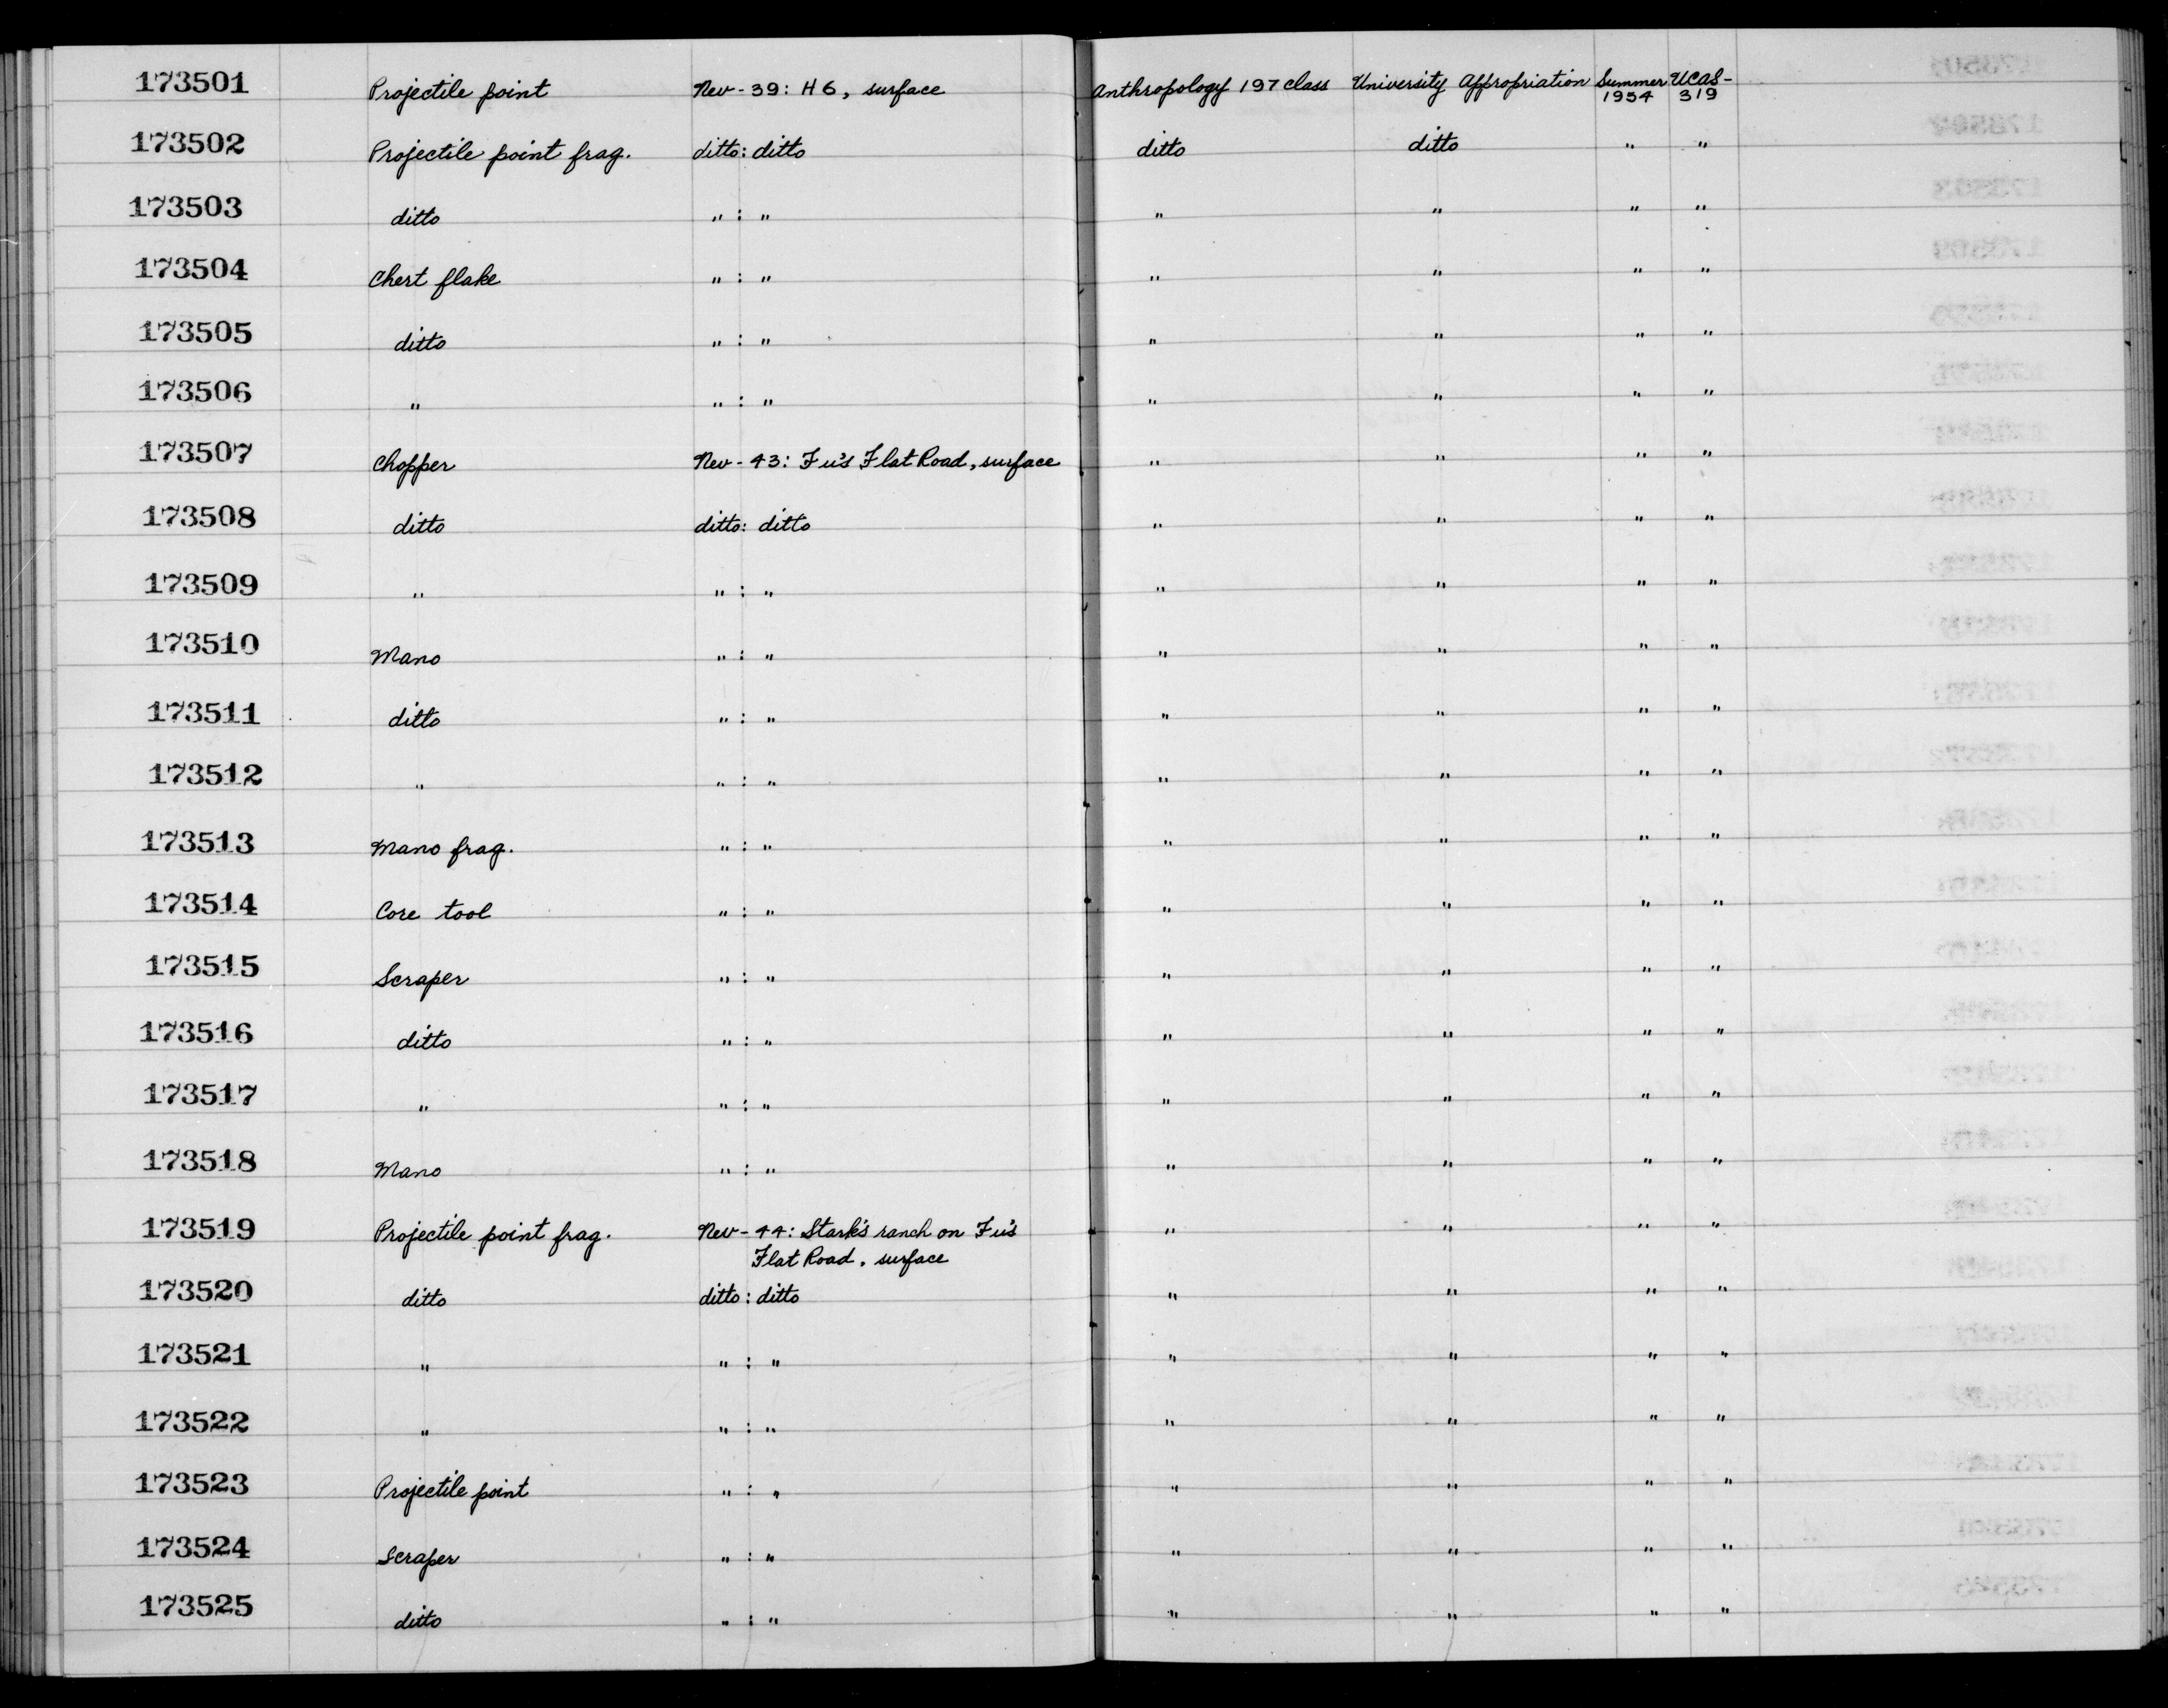 173501 Projectile point Nev-39: H6, surface Anthropology 197 class University Appropriation Summer 1954 UCAS-319
173502 Projectile point frag. ditto: ditto ditto ditto " "
173503 ditto " : " " " " "
173504 Chert flake " : " " " " "
173505 ditto " : " " " " "
173506 " " : " " " " "
173507 Chopper Nev-43: Fu's Flat Road, surface " " " "
173508 ditto ditto: ditto " " " "
173509 " " : " " " " "
173510 Mano " : " " " " "
173511 ditto " : " " " " "
173512 " " : " " " " "
173513 Mano frag. " : " " " " "
173514 Core tool " : " " " " "
173515 Scraper " : " " " " "
173516 ditto " : " " " " "
173517 " " : " " " " "
173518 Mano " : " " " " "
173519 Projectile point frag. Nev-44: Stark's ranch on Fu's " " " "
Flat Road, surface
173520 ditto ditto: ditto " " " "
173521 " " : " " " " "
173522 " " : " " " " "
173523 Projectile point " : " " " " "
173524 Scraper " : " " " " "
173525 ditto " : " " " " "